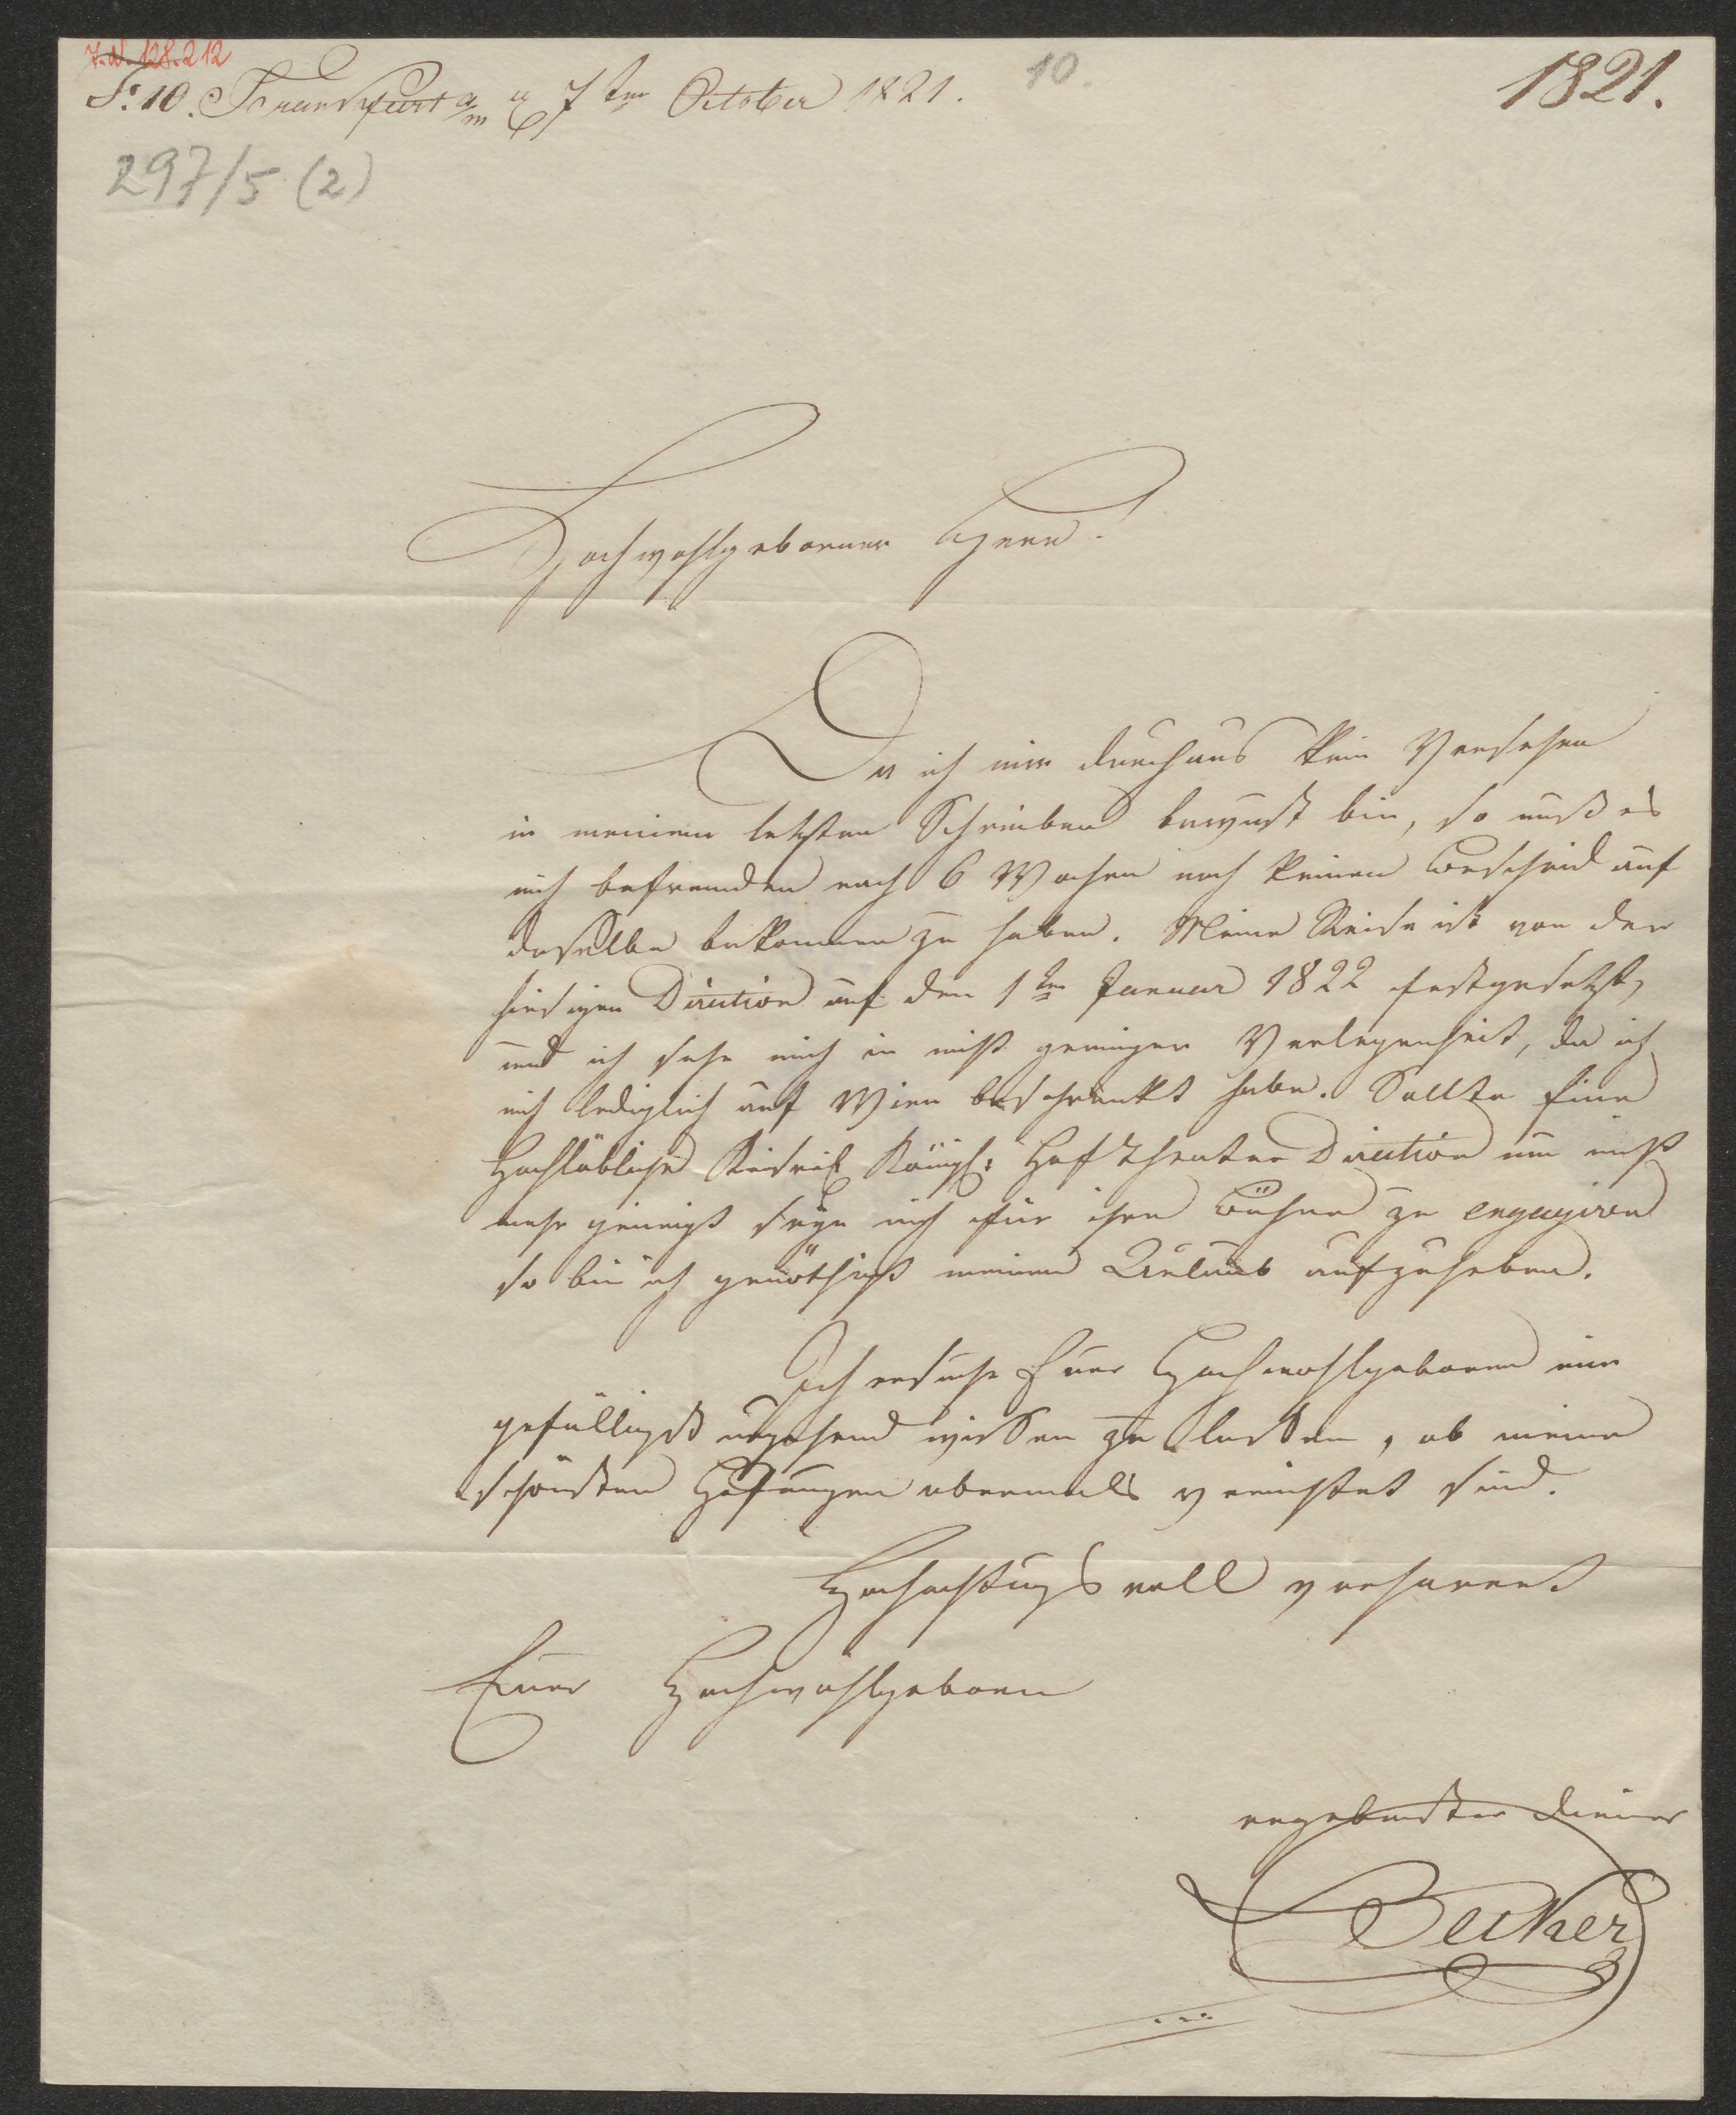 I.N. 128.212
F: 10. Frankfurt a/m 7ten October 1821.
10.
1821.
297/5 (2)
Hochwohlgeborner Herr!
Da ich mir durchaus kein Versehen
in meinem letzten Schreiben bewust bin, so muß es
mich befremden nach 6 Wochen noch keinen Bescheid auf
dasselbe bekommen zu haben. Meine Reise ist von der
hiesigen Direction auf den 1ten Januar 1822 festgesetzt,
und ich sehe mich in nicht geringer Verlegenheit, da ich
mich lediglich auf Wien beschränkt habe. Sollte Eine
Hochlöbliche Keiserl Königl: Hof Theater Direction nun nicht
mehr geneigt seyn mich für ihre Bühne zu engagiren
so bin ich genöthigt meinen Urlaub aufzuheben.
Ich ersuche Euer Hochwohlgeboren mir
gefälligst umgehend wissen zu lassen, ob meine
schönsten Hofnungen abermals vernichtet sind.
Hochachtungsvoll verharret
Euer Hochwohlgeboren
ergebenster Diener
Becker